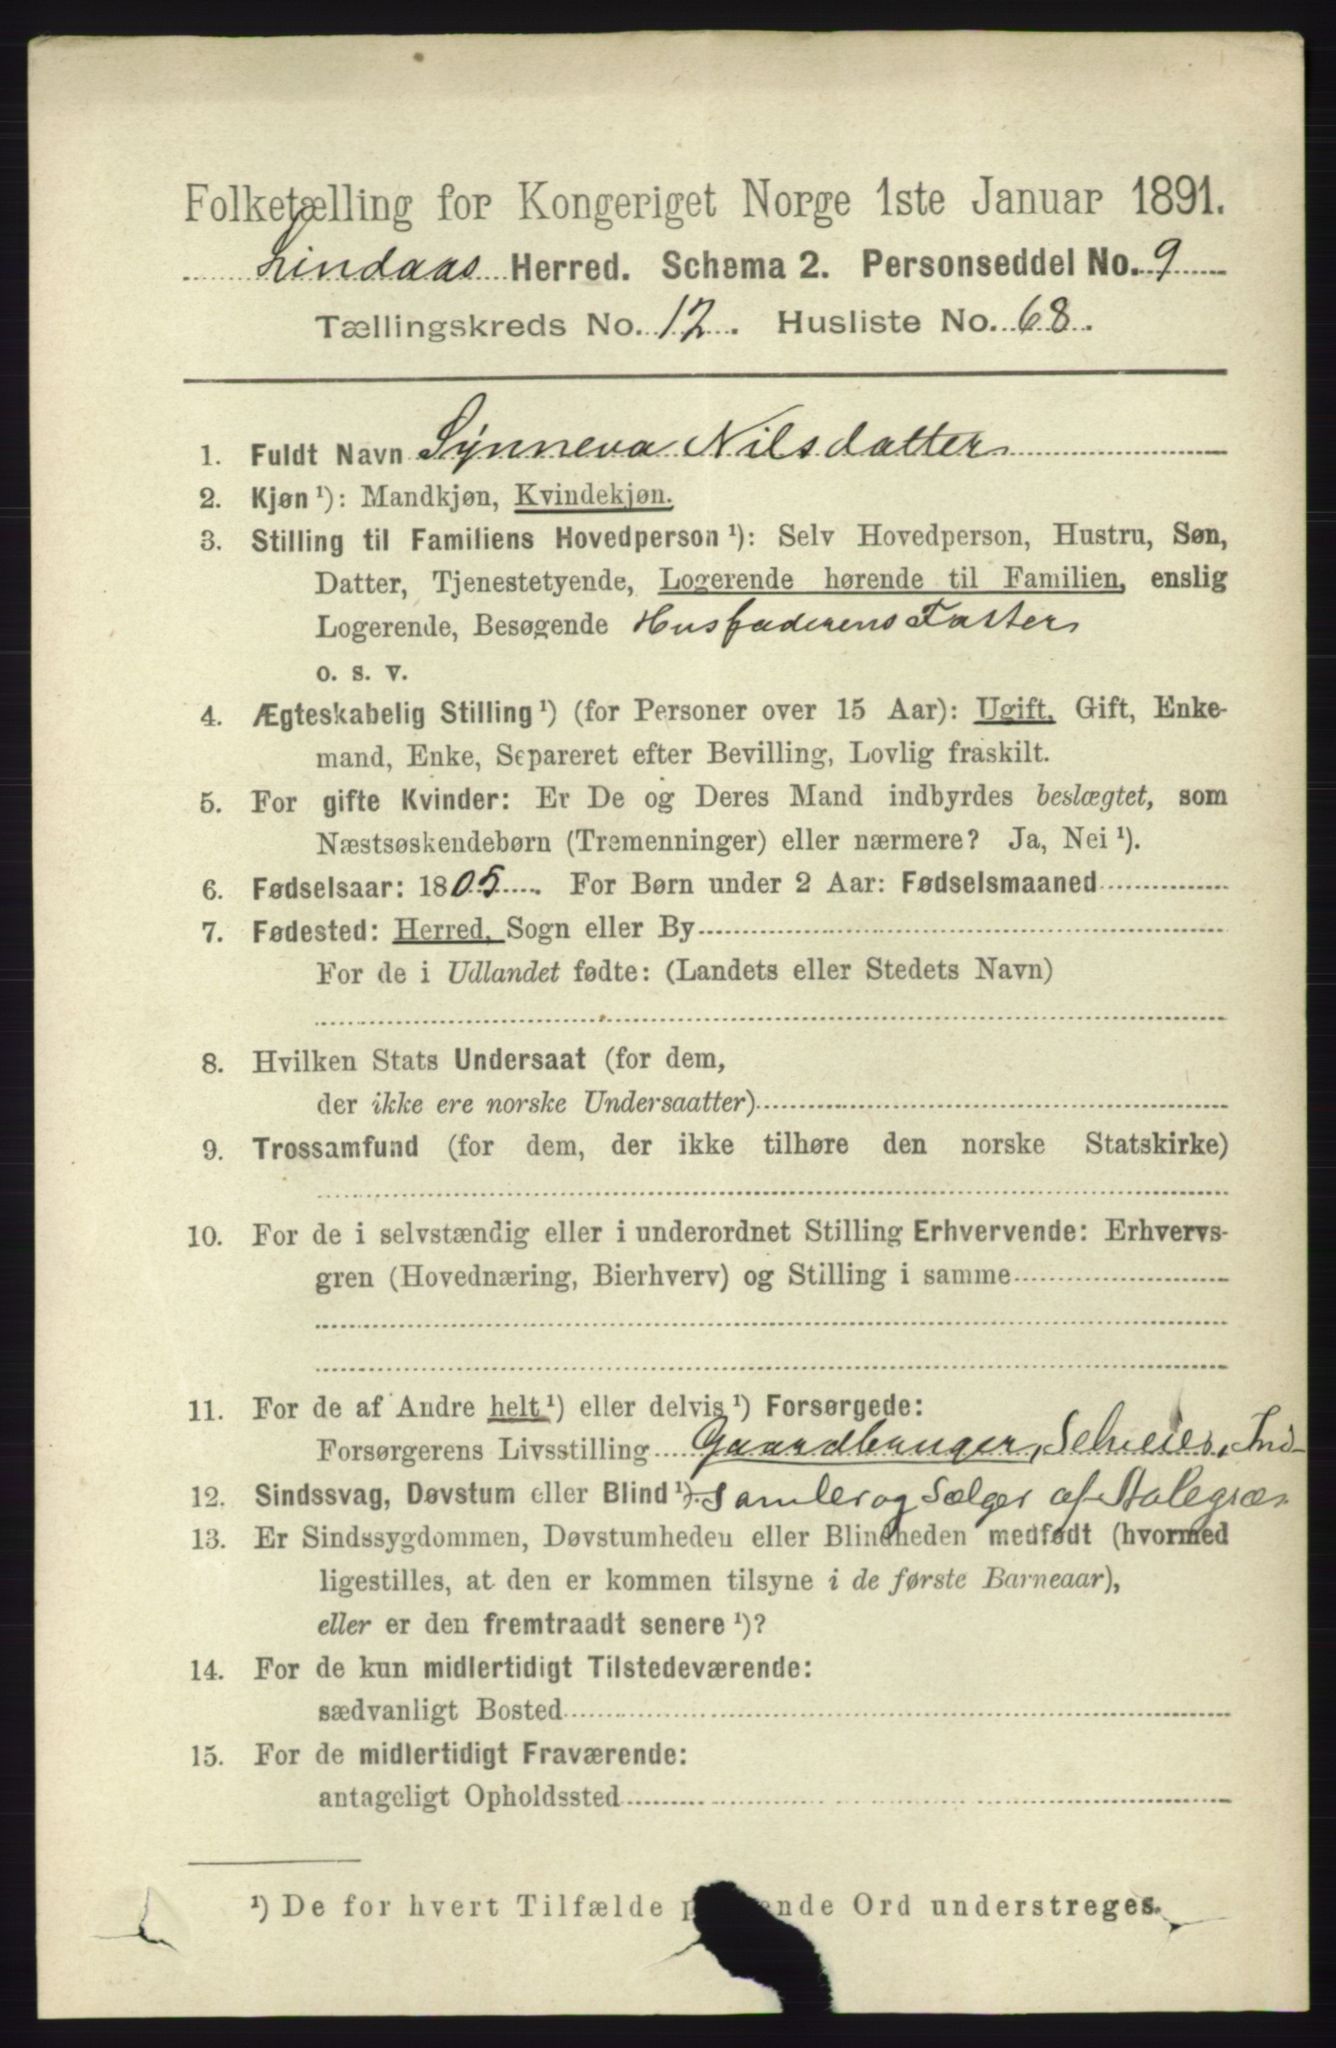 Folketælling for Kongeriget Norge 1ste Januar 1891.
Lindaas Herred. Schema 2. Personseddel No. 9
Tællingskreds No. 12. Husliste No. 68.
1. Fuldt Navn Synneva Nilsdatter
2. Kjøn ¹): Mandkjøn, Kvindekjøn.
3. Stilling til Familiens Hovedperson ¹): Selv Hovedperson, Hustru, Søn,
Datter, Tjenestetyende, Logerende hørende til Familien, enslig
Logerende, Besøgende Husfaderens Faster
o. s. v.
4. Ægteskabelig Stilling ¹) (for Personer over 15 Aar): Ugift, Gift, Enke-
mand, Enke, Separeret efter Bevilling, Lovlig fraskilt.
5. For gifte Kvinder: Er De og Deres Mand indbyrdes beslægtet, som
Næstsøskendebørn (Tremenninger) eller nærmere? Ja, Nei ¹).
6. Fødselsaar: 1805. For Børn under 2 Aar: Fødselsmaaned
7. Fødested: Herred, Sogn eller By
For de i Udlandet fødte: (Landets eller Stedets Navn)
8. Hvilken Stats Undersaat (for dem,
der ikke ere norske Undersaatter)
9. Trossamfund (for dem, der ikke tilhøre den norske Statskirke)
10. For de i selvstændig eller i underordnet Stilling Erhvervende: Erhvervs-
gren (Hovednæring, Bierhverv) og Stilling i samme
11. For de af Andre helt ¹) eller delvis ¹) Forsørgede:
Forsørgerens Livsstilling Gaardbruger, Selveier, Ind-
12. Sindssvag, Døvstum eller Blind ¹). samler og Sælger af
13. Er Sindssygdommen, Døvstumheden eller Blindheden medfødt (hvormed
ligestilles, at den er kommen tilsyne i de første Barneaar),
eller er den fremtraadt senere ¹)?
14. For de kun midlertidigt Tilstedeværende:
sædvanligt Bosted
15. For de midlertidigt Fraværende:
antageligt Opholdssted
¹) De for hvert Tilfælde p ende Ord understreges.